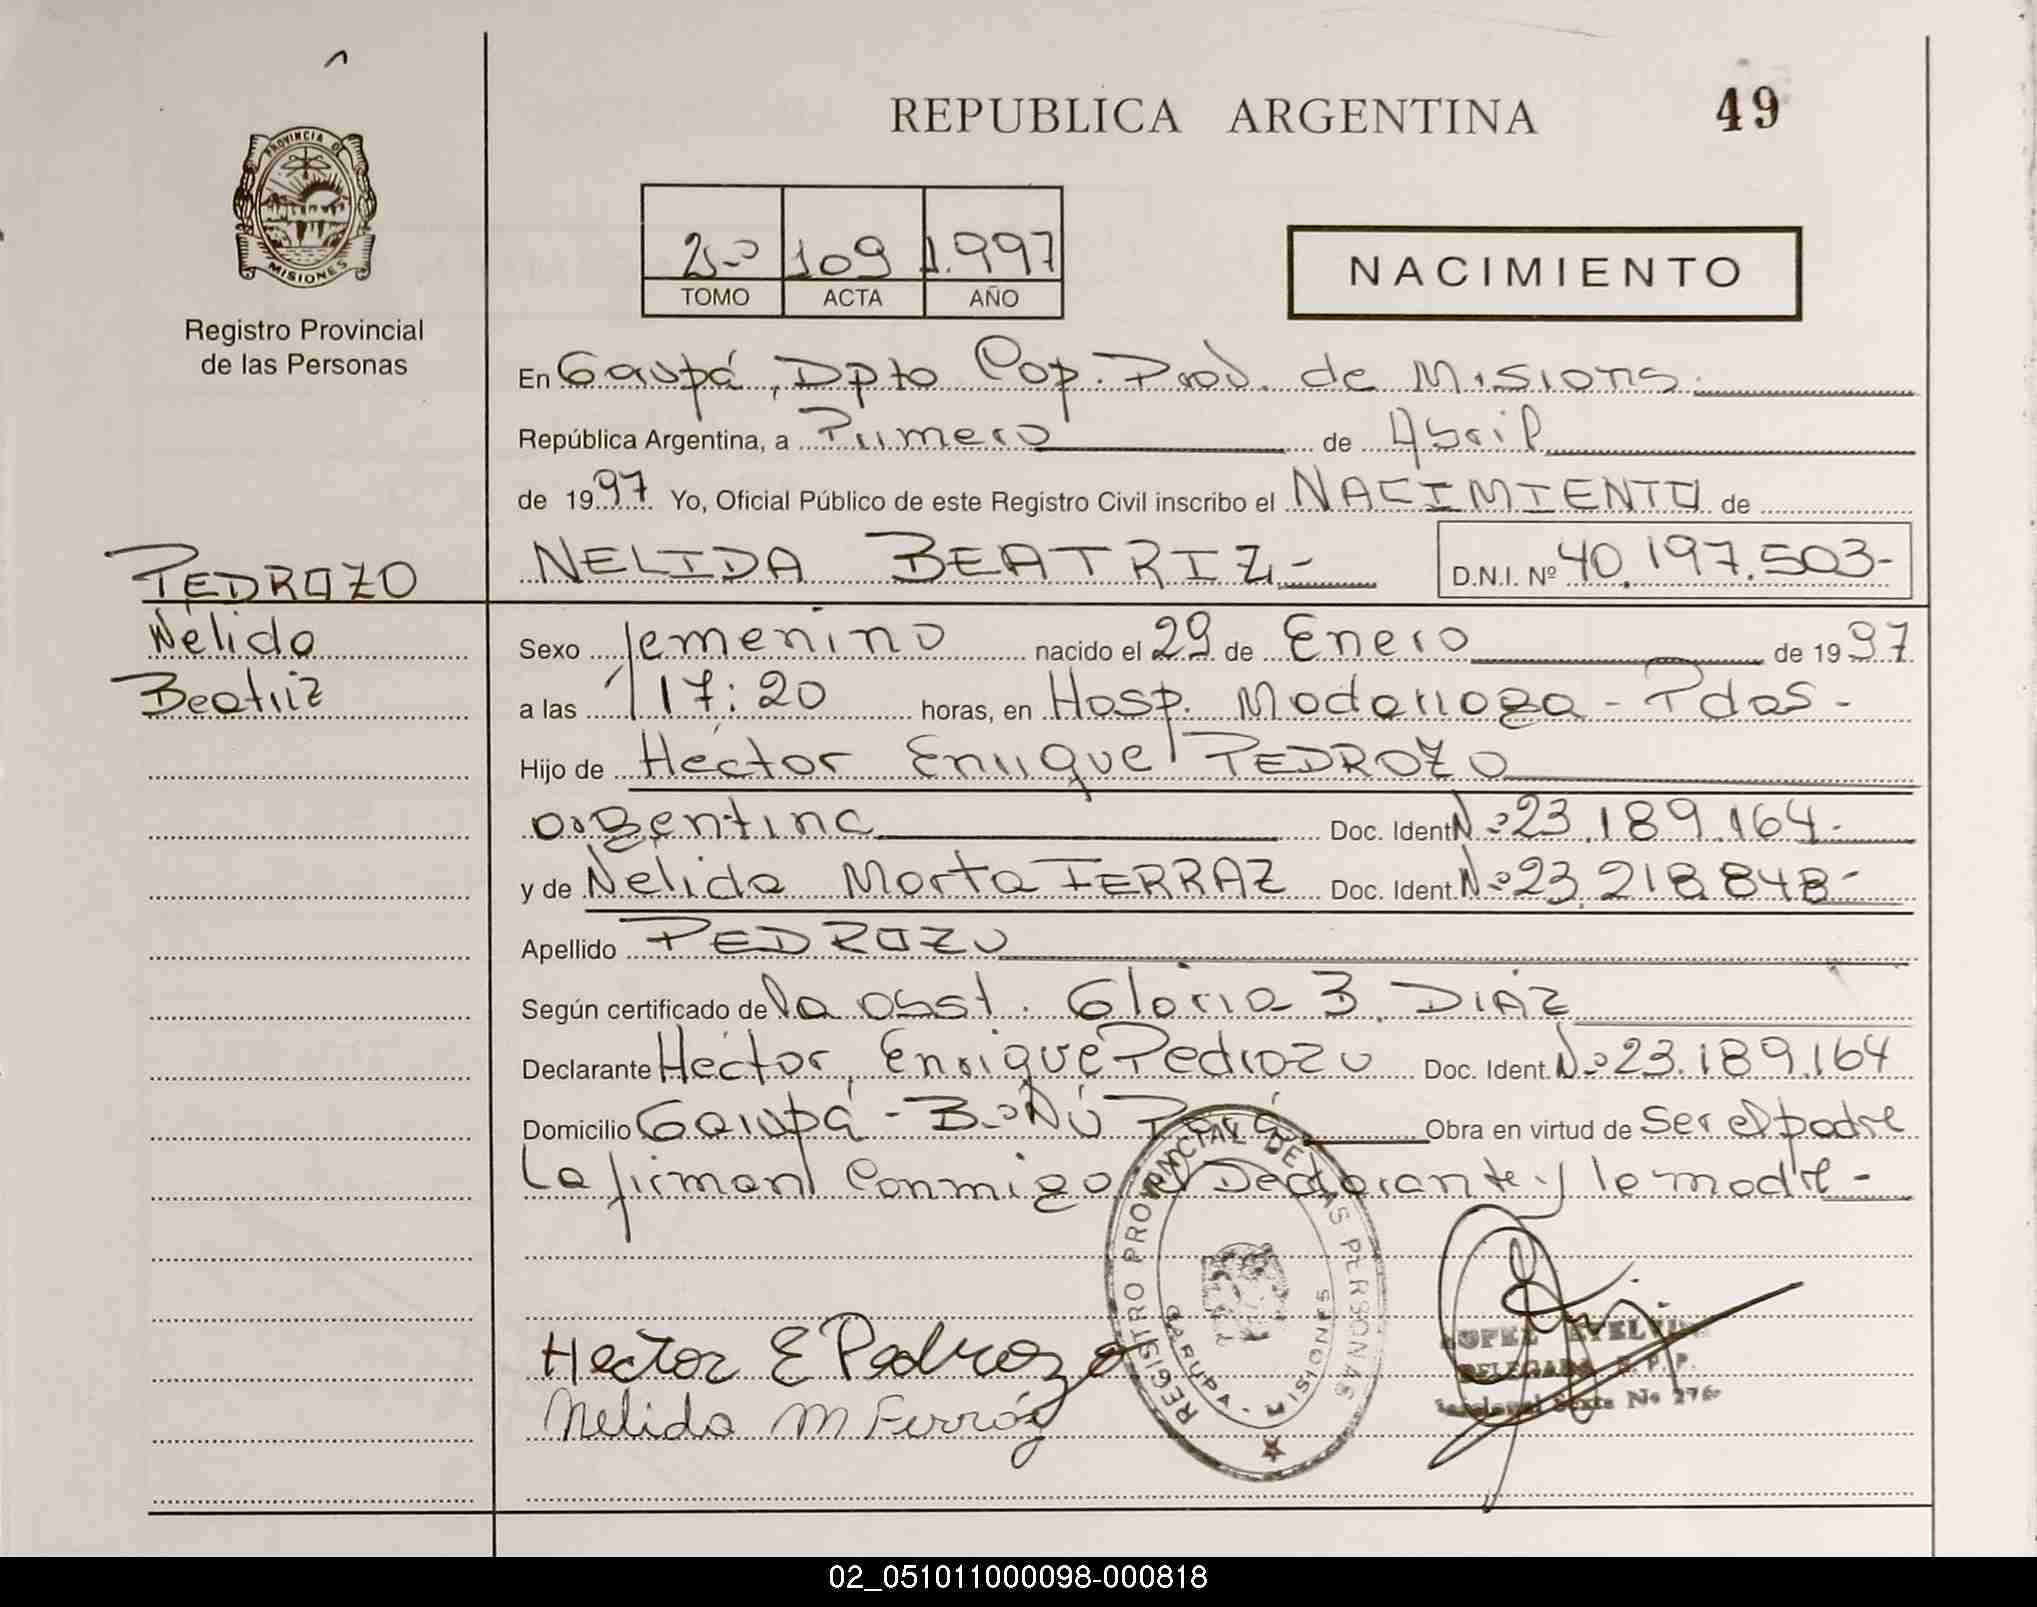 REPUBLICA ARGENTINA
49
PROVINCIA DE
MISIONES
Registro Provincial
de las Personas
2do 109 1.997
TOMO ACTA AÑO
NACIMIENTO
En Garupá, Dpto Cap. Prov. de Misiones.
República Argentina, a Primero de Abril
de 1997 Yo, Oficial Público de este Registro Civil inscribo el NACIMIENTO de
PEDROZO
NELIDA BEATRIZ- D.N.I. Nº 40.197.503-
Nélida
Beatriz
Sexo femenino nacido el 29 de Enero de 1997
a las 17:20 horas, en Hosp. Madariaga - Pdas -
Hijo de Héctor Enrique PEDROZO
argentina Doc. Ident Nº 23.189.164-
y de Nelida Marta FERRAZ Doc. Ident. Nº 23.218.848-
Apellido PEDROZO
Según certificado de la obst. Gloria B. DIAZ
Declarante Héctor Enrique Pedrozo Doc. Ident. Nº 23.189.164
Domicilio Garupá - Bº Ñú Porá Obra en virtud de ser el padre
La firman conmigo el Declarante y la madre -
REGISTRO PROVINCIAL DE LAS PERSONAS
GARUPA - MISIONES
Hector E Pedrozo
Nelida M Ferráz
LOPEZ ETELVINA
DELEGADA R.P.P.
Nº 276
02_051011000098-000818